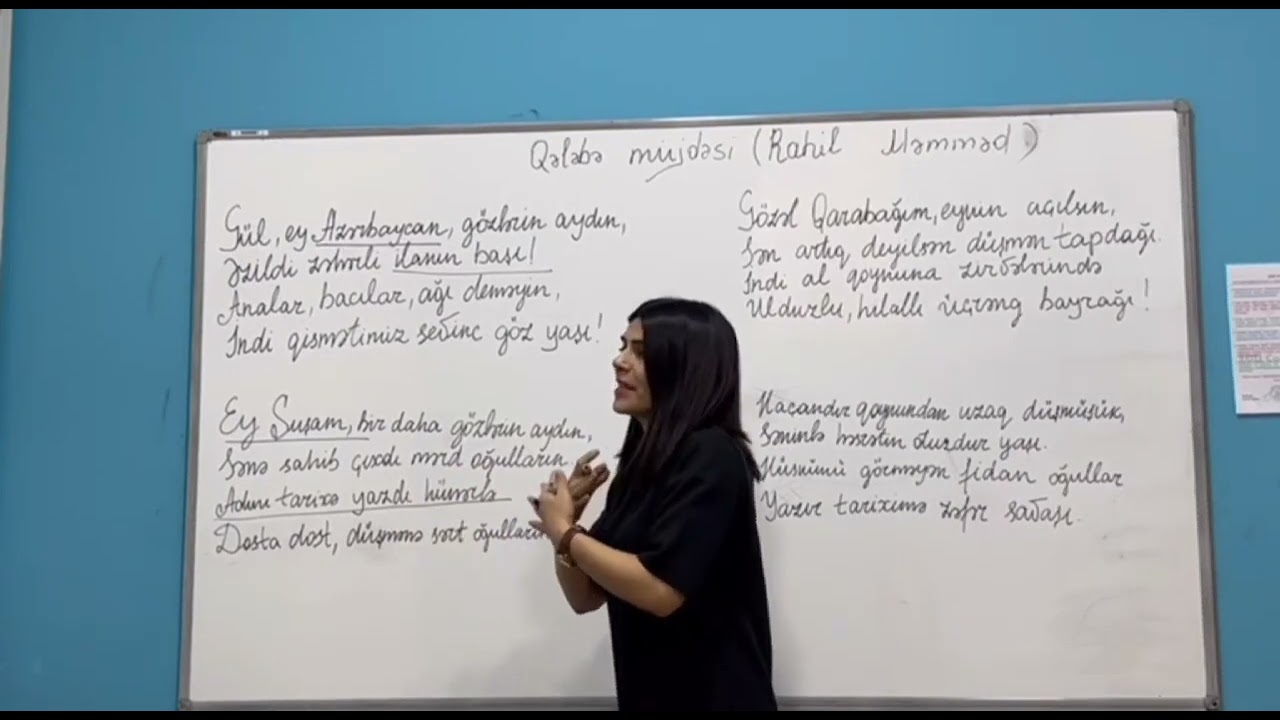 Qələbə müjdəsi (Rahil Məmməd)
Gül, ey Azərbaycan, gözlərin aydın,
Əzildi zəhərli ilanın başı!
Analar, bacılar, ağı deməyin,
İndi qismətimiz sevinc göz yaşı!
Ey Şuşam, bir daha gözlərin aydın,
Sənə sahib çıxdı mərd oğulların
Adını tarixə yazdı hünərlə
Dosta dost, düşmənə sərt oğulların
Gözəl Qarabağım, eynin açılsın,
Sən artıq deyilsən düşmən tapdağı.
İndi al qoynuna zirvələrində
Ulduzlu, hilallı üçrəng bayrağı!
Haçandır qoynundan uzaq düşmüşük,
Səninlə həsrətin durdur yaşı.
Hüsnünü görməyən fidan oğullar
Yazır tariximə zəfər savaşı.